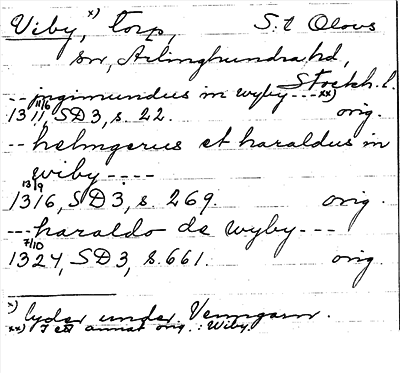 Viby, x) torp, S:t Olovs
sn, Ärlinghundra hd,
Stockh. l.
-- ingimundus in wyby --- xx)
13 11/6 11, SD 3, s. 22. orig.
-- helmgerus et haraldus in
wiby ----
13/9
1316, SD 3, s. 269. orig.
--- haraldo de wyby ---
7/10
1324, SD 3, s. 661. orig.
x) lyder under Venngarn.
xx) I ett annat orig.: Wiby.